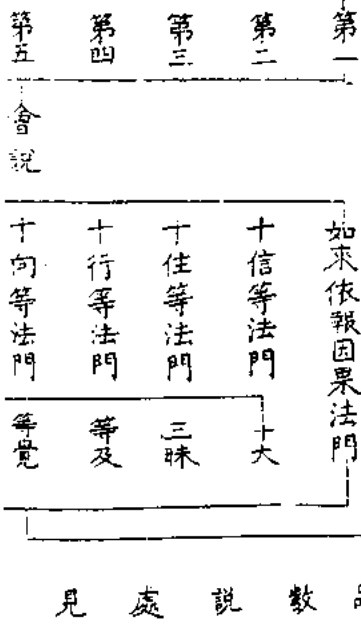 第一
第二
第三
第四
第五
會説
如來依報因果法門
十信等法門
十住等法門
十行等法門
十向等法門
十大
三昧
等及
等覺
數説處見